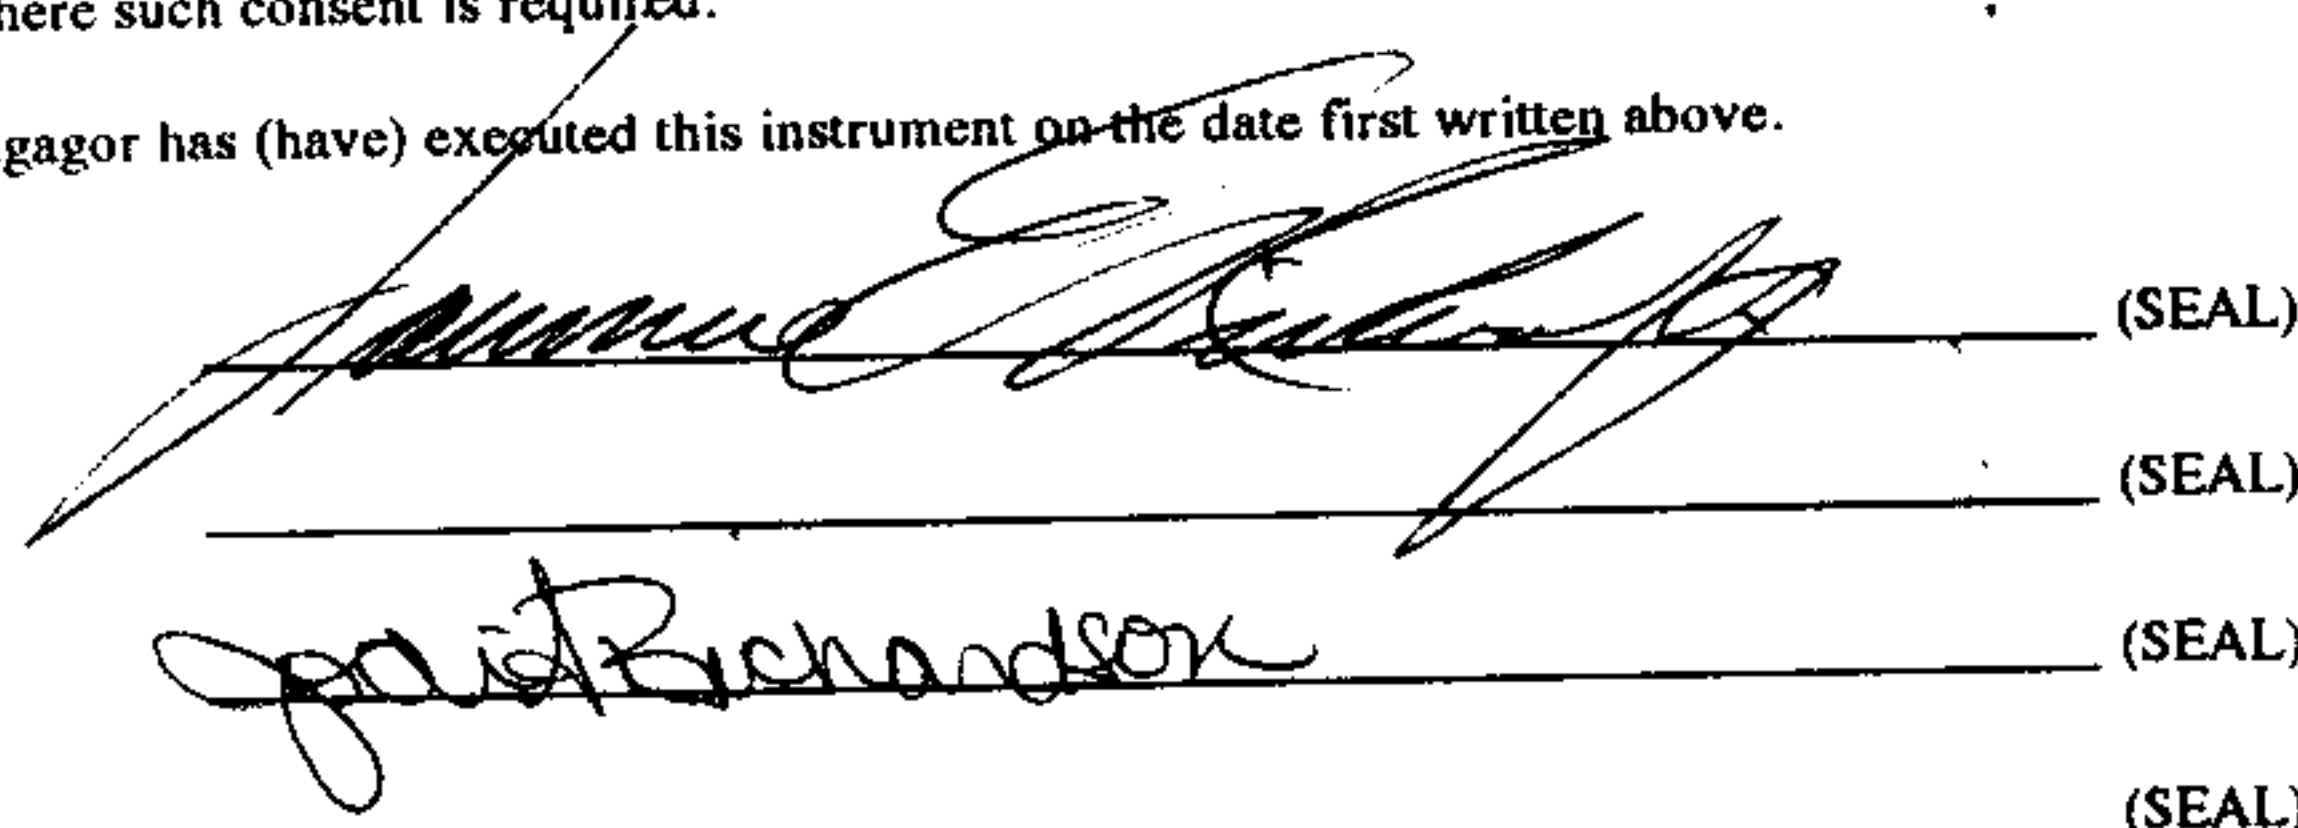 here such consent is required.
gagor has (have) executed this instrument on the date first written above.
(SEAL)
(SEAL)
Richardson (SEAL)
(SEAL)